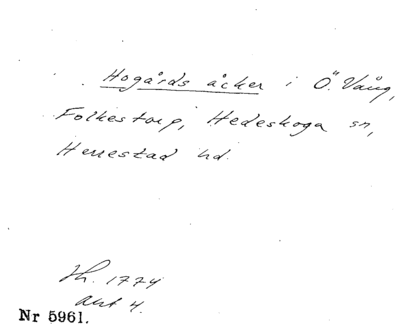 Hogårds åcker i Ö. Vång,
Folkestorp, Hedeskoga sn,
Herrestad hd.
Jh. 1774
akt 4.
Nr 5961.